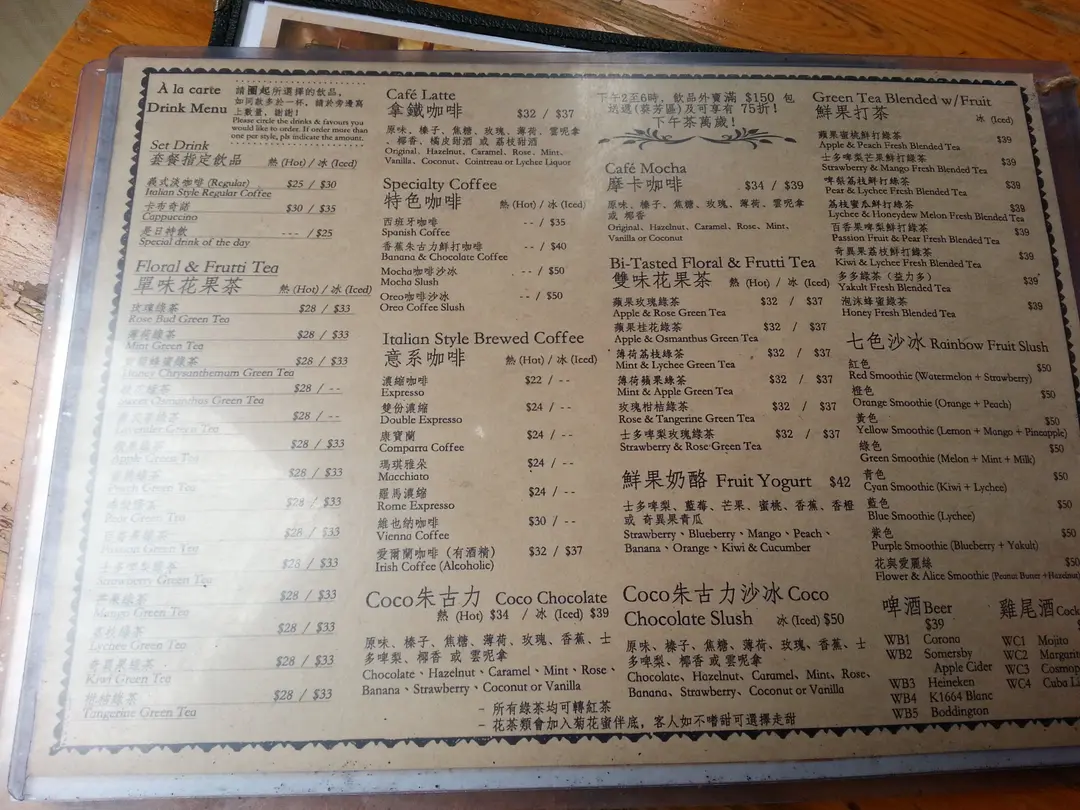 À la carte
Drink Menu
請圈起所選擇的飲品,
如同款多於一杯, 請於旁邊寫
上數量, 謝謝!
Please circle the drinks & favours you
would like to order. If order more than
one per style, pls indicate the amount.
Set Drink
套餐指定飲品 熱 (Hot) / 冰 (Iced)
義式淡咖啡 (Regular) $25 / $30
Italian Style Regular Coffee
卡布奇諾 $30 / $35
Cappuccino
是日特飲 --- / $25
Special drink of the day
Floral & Frutti Tea
單味花果茶 熱 (Hot) / 冰 (Iced)
玫瑰綠茶 $28 / $33
Rose Bud Green Tea
薄荷綠茶 $28 / $33
Mint Green Tea
$28 / $33
Honey Chrysanthemum Green Tea
$28 / --
Sweet Osmanthus Green Tea
$28 / --
Lavender Green Tea
$28 / $33
Apple Green Tea
$28 / $33
Peach Green Tea
$28 / $33
Pear Green Tea
$28 / $33
Passion Green Tea
士多啤梨綠茶 $28 / $33
Strawberry Green Tea
芒果綠茶 $28 / $33
Mango Green Tea
荔枝綠茶 $28 / $33
Lychee Green Tea
奇異果綠茶 $28 / $33
Kiwi Green Tea
柑桔綠茶 $28 / $33
Tangerine Green Tea
Café Latte
拿鐵咖啡 $32 / $37
原味、榛子、焦糖、玫瑰、薄荷、雲呢拿
、椰香、橘皮甜酒 或 荔枝甜酒
Original、Hazelnut、Caramel、Rose、Mint、
Vanilla、Coconut、Cointreau or Lychee Liquor
Specialty Coffee
特色咖啡 熱 (Hot) / 冰 (Iced)
西班牙咖啡 -- / $35
Spanish Coffee
香蕉朱古力鮮打咖啡 -- / $40
Banana & Chocolate Coffee
Mocha咖啡沙冰 -- / $50
Mocha Slush
Oreo咖啡沙冰 -- / $50
Oreo Coffee Slush
Italian Style Brewed Coffee
意系咖啡 熱 (Hot) / 冰 (Iced)
濃縮咖啡 $22 / --
Expresso
雙份濃縮 $24 / --
Double Expresso
康寶蘭 $24 / --
Comparra Coffee
瑪琪雅朵 $24 / --
Macchiato
羅馬濃縮 $24 / --
Rome Expresso
維也納咖啡 $30 / --
Vienna Coffee
愛爾蘭咖啡 (有酒精) $32 / $37
Irish Coffee (Alcoholic)
Coco朱古力 Coco Chocolate
熱 (Hot) $34 / 冰 (Iced) $39
原味、榛子、焦糖、薄荷、玫瑰、香蕉、士
多啤梨、椰香 或 雲呢拿
Chocolate、Hazelnut、Caramel、Mint、Rose、
Banana、Strawberry、Coconut or Vanilla
- 所有綠茶均可轉紅茶
- 花茶類會加入菊花蜜伴底, 客人如不嗜甜可選擇走甜
下午2至6時, 飲品外賣滿 $150 包
送遞(葵芳區)及可享有 75折!
下午茶萬歲!
Café Mocha
摩卡咖啡 $34 / $39
原味、榛子、焦糖、玫瑰、薄荷、雲呢拿
或 椰香
Original、Hazelnut、Caramel、Rose、Mint、
Vanilla or Coconut
Bi-Tasted Floral & Frutti Tea
雙味花果茶 熱 (Hot) / 冰 (Iced)
蘋果玫瑰綠茶 $32 / $37
Apple & Rose Green Tea
蘋果桂花綠茶 $32 / $37
Apple & Osmanthus Green Tea
薄荷荔枝綠茶 $32 / $37
Mint & Lychee Green Tea
薄荷蘋果綠茶 $32 / $37
Mint & Apple Green Tea
玫瑰柑桔綠茶 $32 / $37
Rose & Tangerine Green Tea
士多啤梨玫瑰綠茶 $32 / $37
Strawberry & Rose Green Tea
鮮果奶酪 Fruit Yogurt $42
士多啤梨、藍莓、芒果、蜜桃、香蕉、香橙
或 奇異果青瓜
Strawberry、Blueberry、Mango、Peach、
Banana、Orange、Kiwi & Cucumber
Coco朱古力沙冰 Coco
Chocolate Slush 冰 (Iced) $50
原味、榛子、焦糖、薄荷、玫瑰、香蕉、士
多啤梨、椰香 或 雲呢拿
Chocolate、Hazelnut、Caramel、Mint、Rose、
Banana、Strawberry、Coconut or Vanilla
Green Tea Blended w/ Fruit
鮮果打茶 冰 (Iced)
蘋果蜜桃鮮打綠茶 $39
Apple & Peach Fresh Blended Tea
士多啤梨芒果鮮打綠茶 $39
Strawberry & Mango Fresh Blended Tea
啤梨荔枝鮮打綠茶 $39
Pear & Lychee Fresh Blended Tea
荔枝蜜瓜鮮打綠茶 $39
Lychee & Honeydew Melon Fresh Blended Tea
百香果啤梨鮮打綠茶 $39
Passion Fruit & Pear Fresh Blended Tea
奇異果荔枝鮮打綠茶 $39
Kiwi & Lychee Fresh Blended Tea
多多綠茶 (益力多) $39
Yakult Fresh Blended Tea
泡沫蜂蜜綠茶 $39
Honey Fresh Blended Tea
七色沙冰 Rainbow Fruit Slush
紅色 $50
Red Smoothie (Watermelon + Strawberry)
橙色 $50
Orange Smoothie (Orange + Peach)
黃色 $50
Yellow Smoothie (Lemon + Mango + Pineapple)
綠色 $50
Green Smoothie (Melon + Mint + Milk)
青色 $50
Cyan Smoothie (Kiwi + Lychee)
藍色 $50
Blue Smoothie (Lychee)
紫色 $50
Purple Smoothie (Blueberry + Yakult)
花與愛麗絲 $50
Flower & Alice Smoothie (Peanut Butter + Hazelnut)
啤酒 Beer
$39
WB1 Corona
WB2 Somersby
Apple Cider
WB3 Heineken
WB4 K1664 Blanc
WB5 Boddington
雞尾酒 Cock
WC1 Mojito
WC2 Margarit
WC3 Cosmop
WC4 Cuba Li